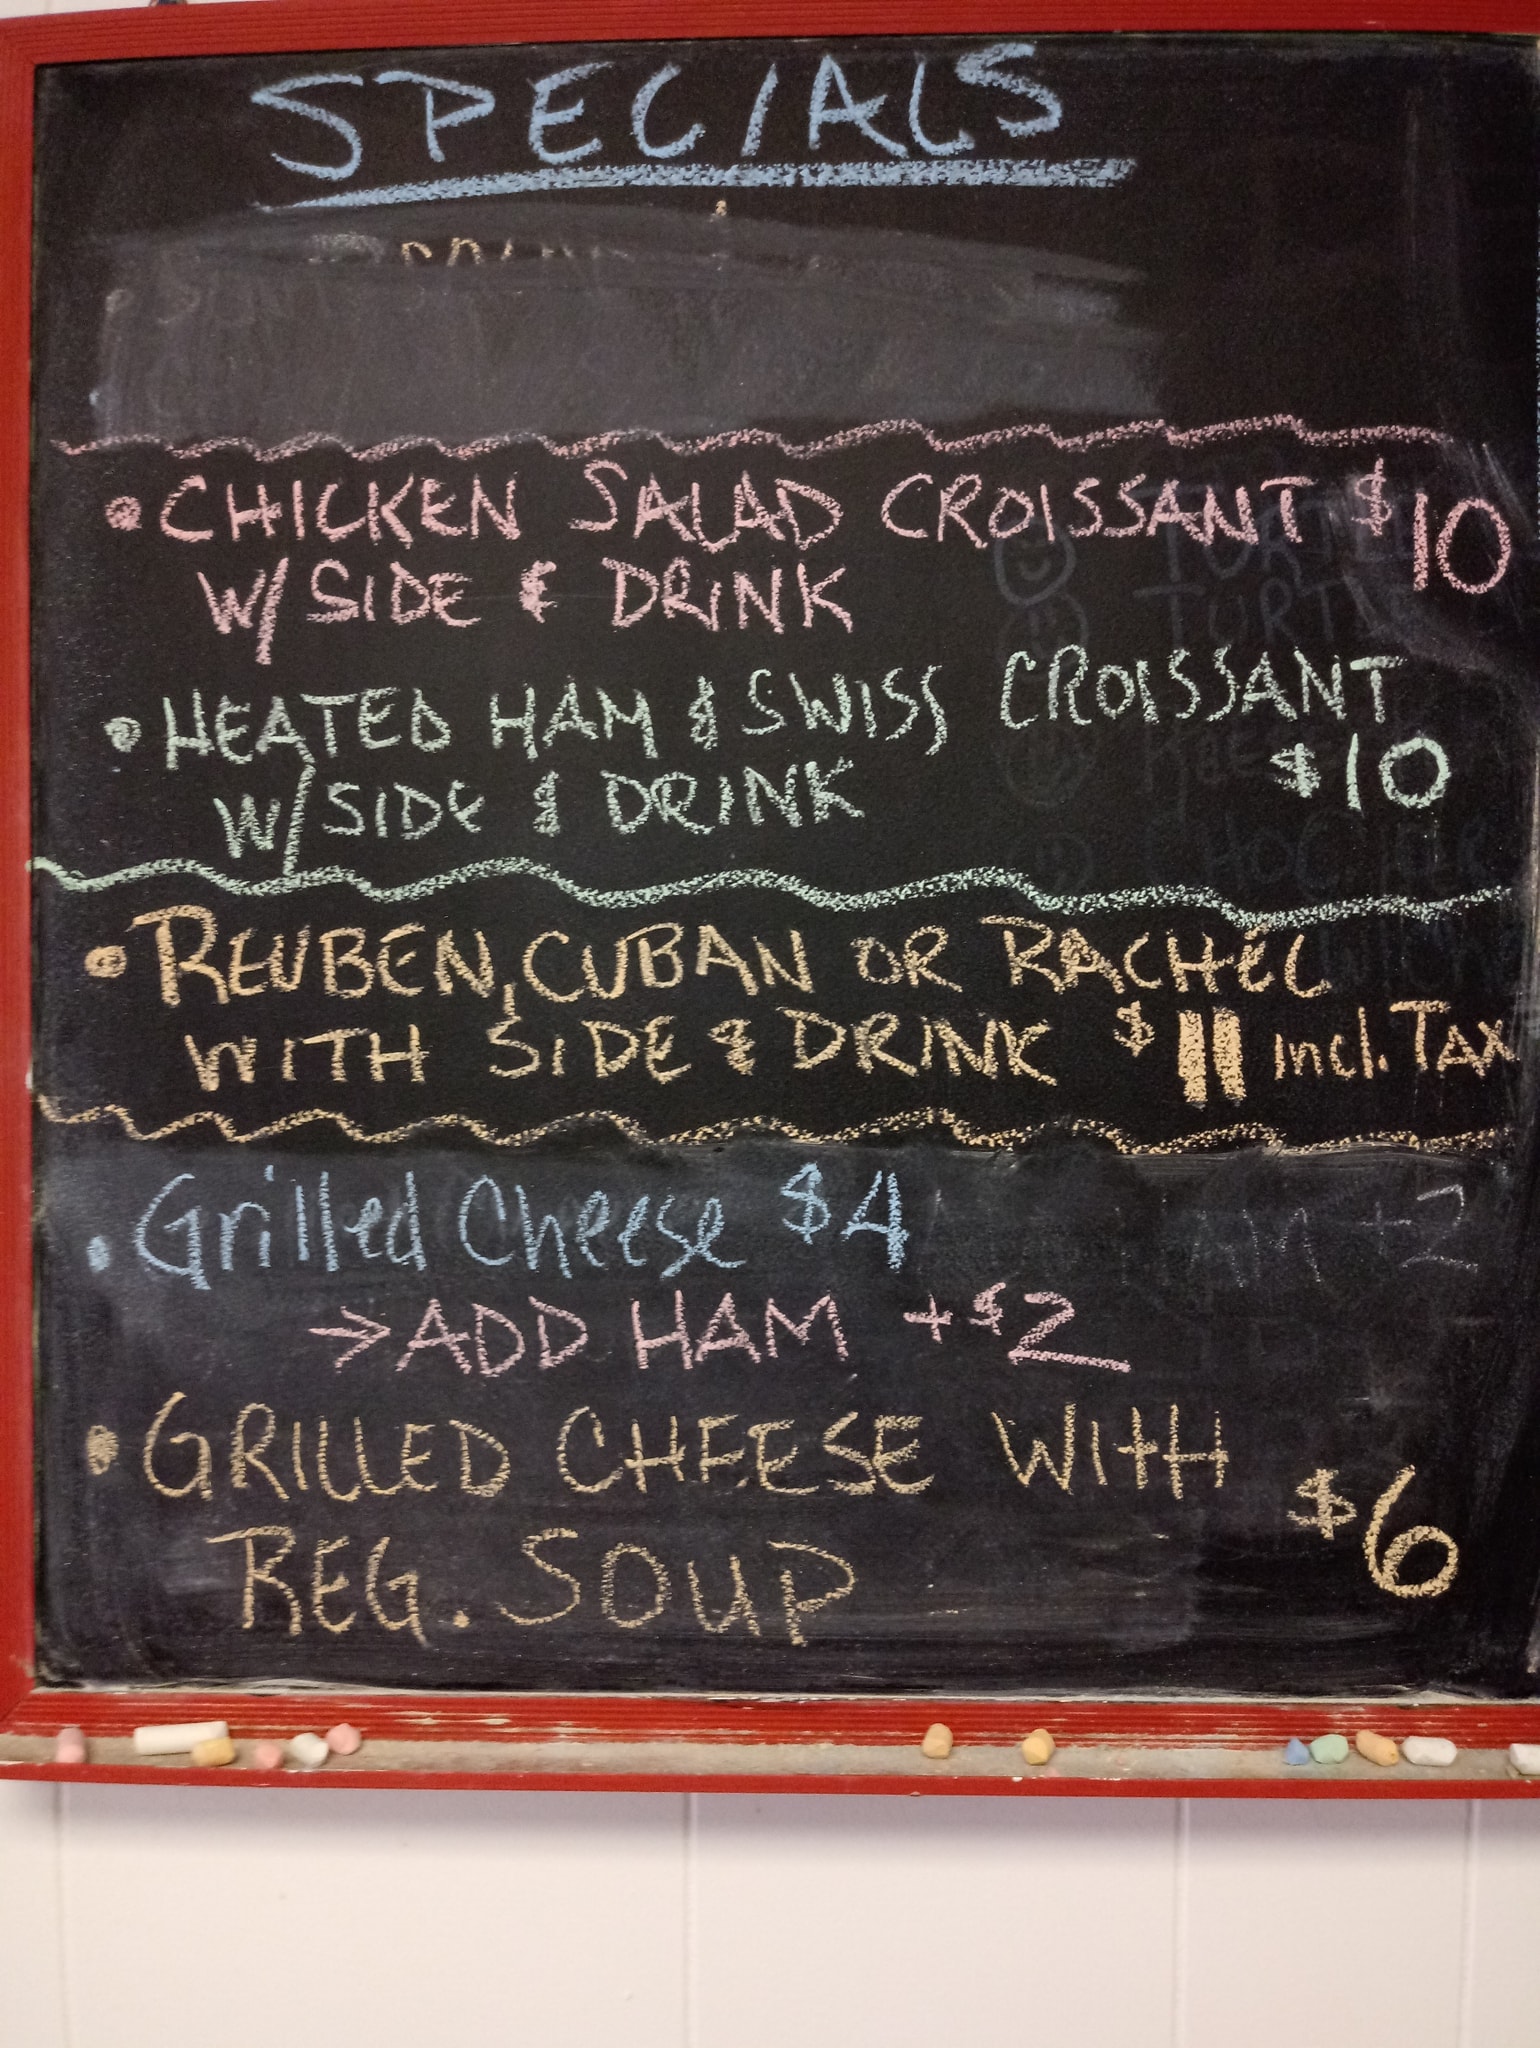 SPECIALS
• CHICKEN SALAD CROISSANT $10
W/ SIDE & DRINK
• HEATED HAM & SWISS CROISSANT
W/ SIDE & DRINK $10
• REUBEN, CUBAN OR RACHEL
WITH SIDE & DRINK $11 incl. TAX
• Grilled Cheese $4
HAM +2
→ ADD HAM +$2
• GRILLED CHEESE WITH
REG. SOUP $6